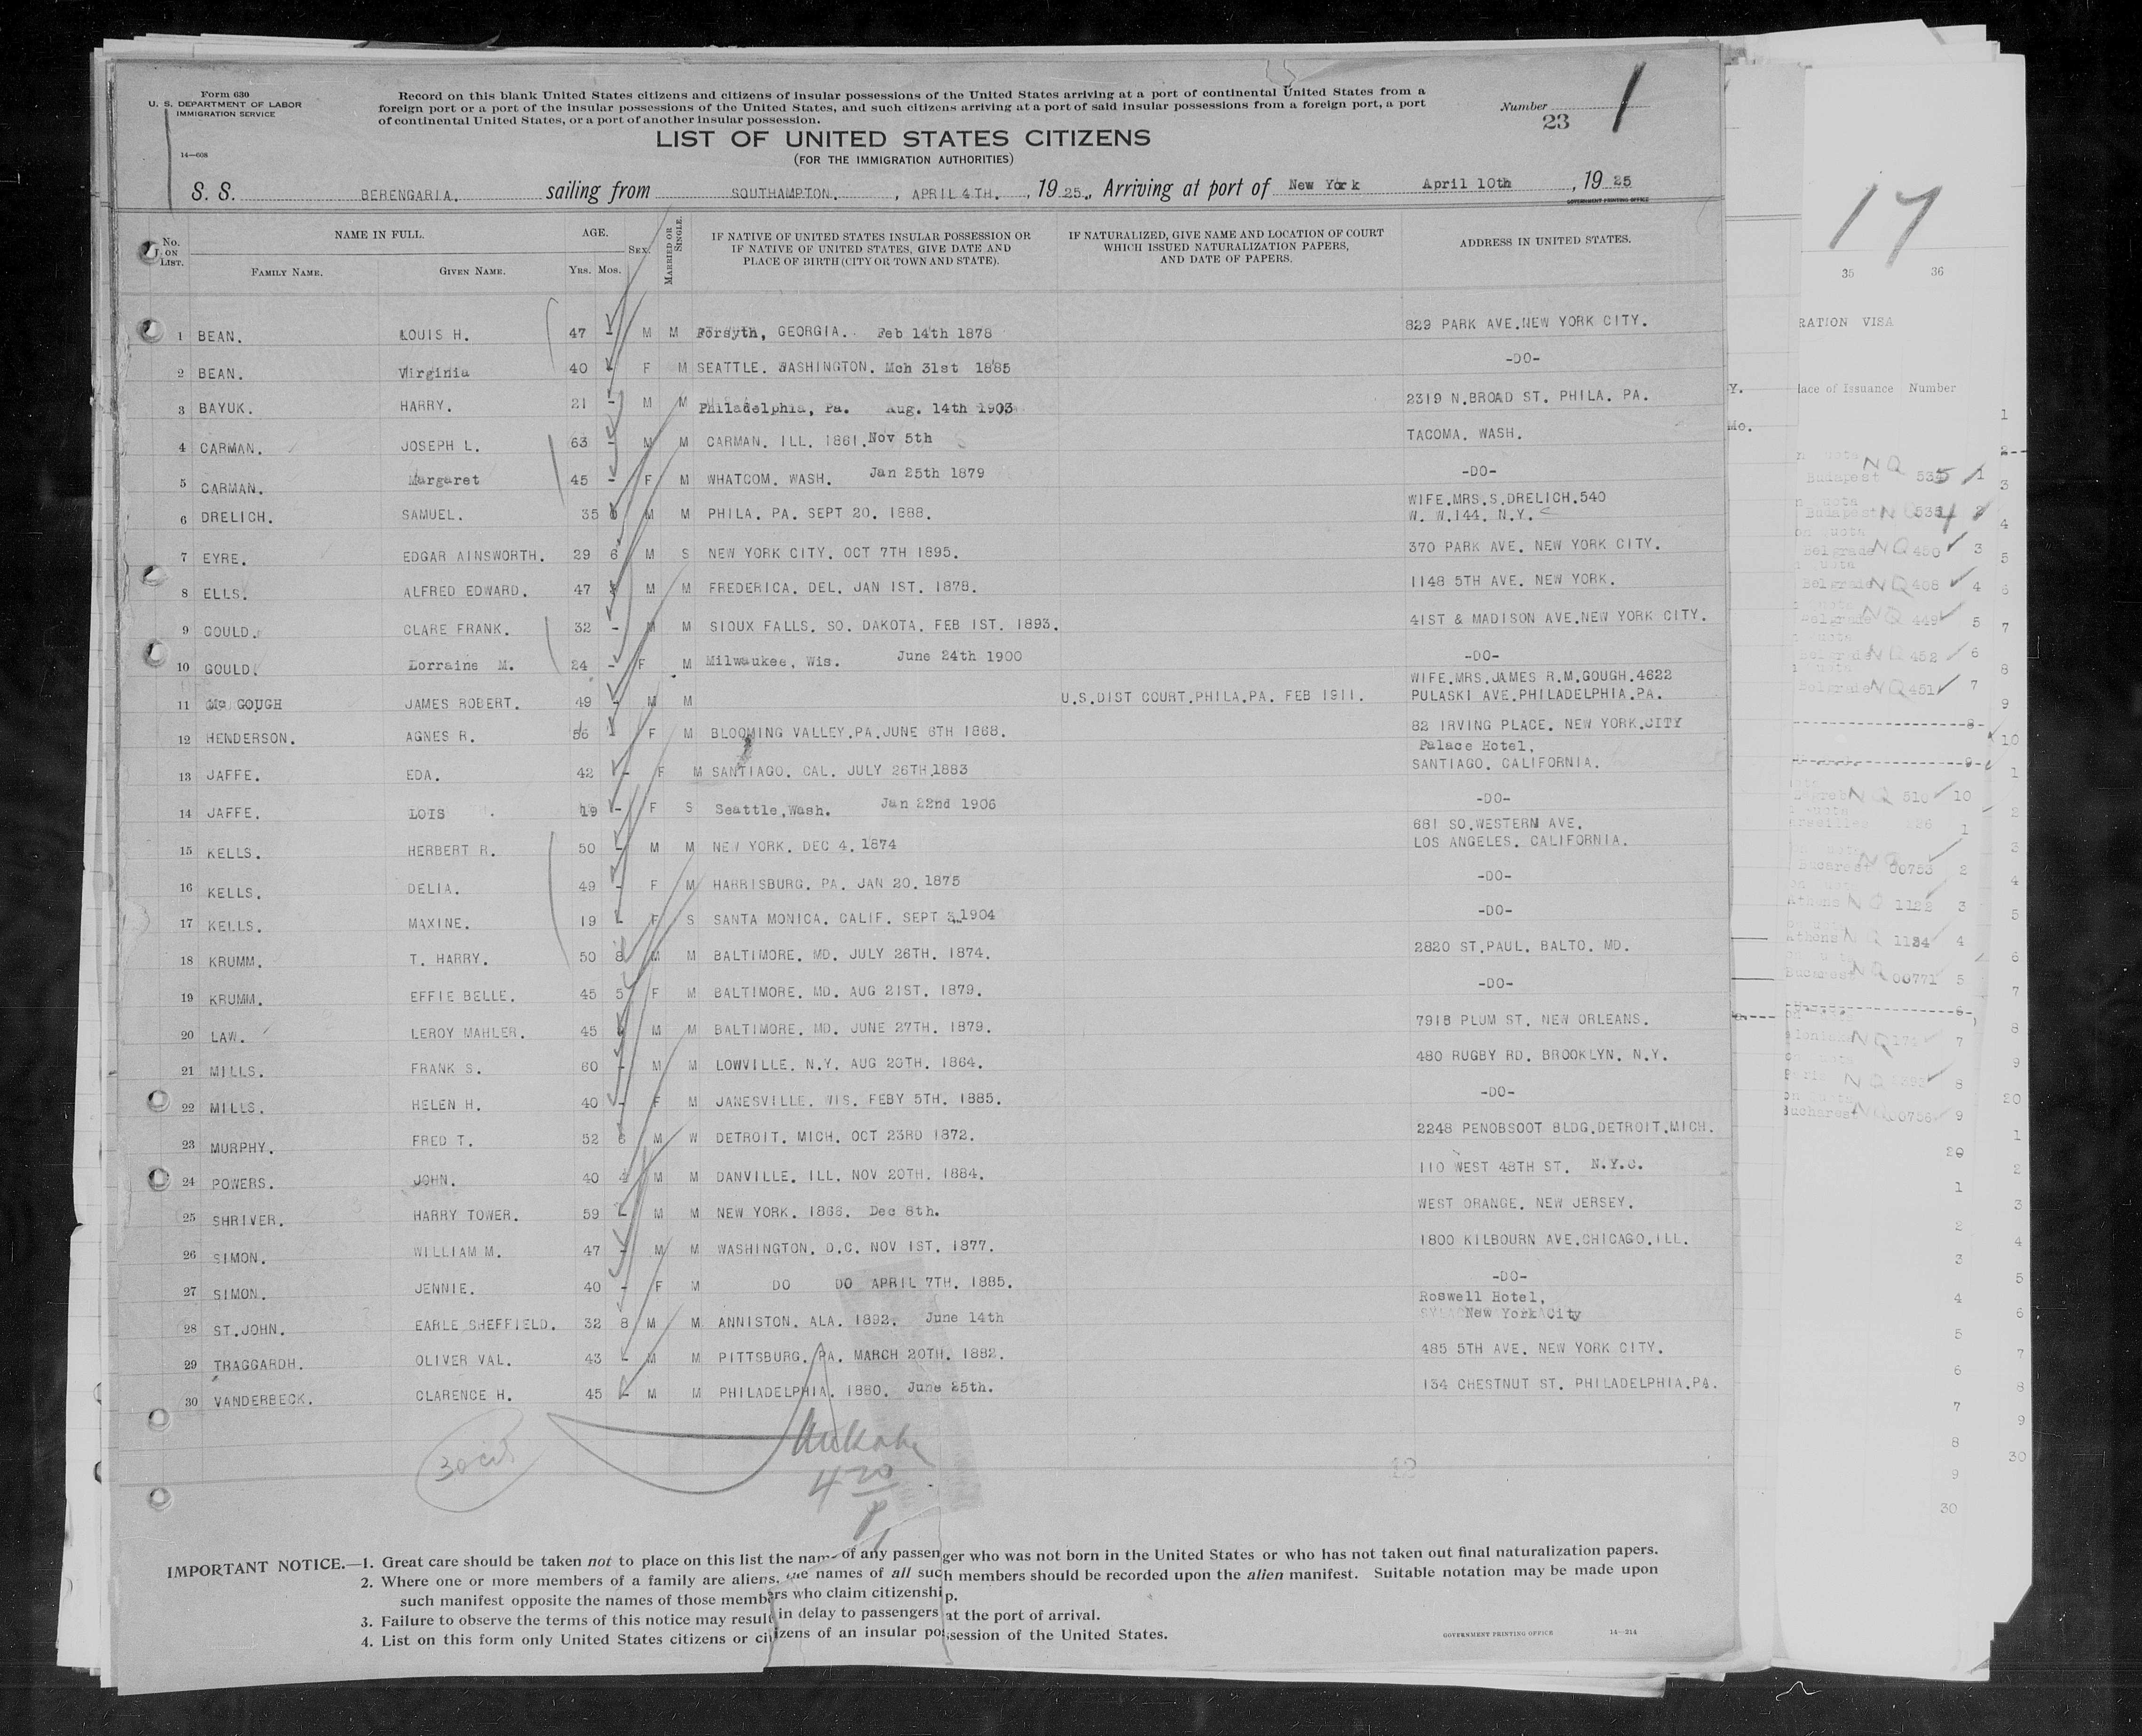 Form 630
U. S. DEPARTMENT OF LABOR
IMMIGRATION SERVICE
14—608
Record on this blank United States citizens and citizens of insular possessions of the United States arriving at a port of continental United States from a
foreign port or a port of the insular possessions of the United States, and such citizens arriving at a port of said insular possessions from a foreign port, a port
of continental United States, or a port of another insular possession.
Number
23
1
LIST OF UNITED STATES CITIZENS
(FOR THE IMMIGRATION AUTHORITIES)
S. S. BERENGARIA. sailing from SOUTHAMPTON. , APRIL 4TH. , 1925., Arriving at port of New York April 10th , 1925
GOVERNMENT PRINTING OFFICE
No. ON LIST. NAME IN FULL. FAMILY NAME. GIVEN NAME. AGE. YRS. MOS. SEX. MARRIED OR SINGLE. IF NATIVE OF UNITED STATES INSULAR POSSESSION OR IF NATIVE OF UNITED STATES, GIVE DATE AND PLACE OF BIRTH (CITY OR TOWN AND STATE). IF NATURALIZED, GIVE NAME AND LOCATION OF COURT WHICH ISSUED NATURALIZATION PAPERS, AND DATE OF PAPERS. ADDRESS IN UNITED STATES.
1 BEAN. LOUIS H. 47 - M M Forsyth, GEORGIA. Feb 14th 1878 829 PARK AVE.NEW YORK CITY.
2 BEAN. Virginia 40 F M SEATTLE. WASHINGTON. Mch 31st 1885 -DO-
3 BAYUK. HARRY. 21 - M M Philadelphia, Pa. Aug. 14th 1903 2319 N.BROAD ST. PHILA. PA.
4 CARMAN. JOSEPH L. 63 - M M CARMAN. ILL. 1861. Nov 5th TACOMA. WASH.
5 CARMAN. Margaret 45 - F M WHATCOM. WASH. Jan 25th 1879 -DO-
6 DRELICH. SAMUEL. 35 M M PHILA. PA. SEPT 20. 1888. WIFE.MRS.S.DRELICH.540
W. W.144. N.Y.
7 EYRE. EDGAR AINSWORTH. 29 6 M S NEW YORK CITY. OCT 7TH 1895. 370 PARK AVE. NEW YORK CITY.
8 ELLS. ALFRED EDWARD. 47 M M FREDERICA. DEL. JAN 1ST. 1878. 1148 5TH AVE. NEW YORK.
9 GOULD. CLARE FRANK. 32 - M M SIOUX FALLS. SO. DAKOTA. FEB 1ST. 1893. 41ST & MADISON AVE.NEW YORK CITY.
10 GOULD. Lorraine M. 24 - F M Milwaukee, Wis. June 24th 1900 -DO-
11 Mc GOUGH JAMES ROBERT. 49 - M M U.S.DIST COURT.PHILA.PA. FEB 1911. WIFE.MRS.JAMES R.M.GOUGH.4622
PULASKI AVE.PHILADELPHIA.PA.
12 HENDERSON. AGNES R. 56 F M BLOOMING VALLEY.PA.JUNE 6TH 1868. 82 IRVING PLACE. NEW YORK.CITY
13 JAFFE. EDA. 42 - F M SANTIAGO. CAL. JULY 26TH.1883 Palace Hotel,
SANTIAGO. CALIFORNIA.
14 JAFFE. LOIS 19 - F S Seattle,Wash. Jan 22nd 1906 -DO-
15 KELLS. HERBERT R. 50 - M M NEW YORK. DEC 4. 1874 681 SO.WESTERN AVE.
LOS ANGELES. CALIFORNIA.
16 KELLS. DELIA. 49 - F M HARRISBURG. PA. JAN 20. 1875 -DO-
17 KELLS. MAXINE. 19 F S SANTA MONICA. CALIF. SEPT 3.1904 -DO-
18 KRUMM. T. HARRY. 50 8 M M BALTIMORE. MD. JULY 26TH. 1874. 2820 ST.PAUL. BALTO. MD.
19 KRUMM. EFFIE BELLE. 45 5 F M BALTIMORE. MD. AUG 21ST. 1879. -DO-
20 LAW. LEROY MAHLER. 45 M M BALTIMORE. MD. JUNE 27TH. 1879. 7918 PLUM ST. NEW ORLEANS.
21 MILLS. FRANK S. 60 - M M LOWVILLE. N.Y. AUG 20TH. 1864. 480 RUGBY RD. BROOKLYN. N.Y.
22 MILLS. HELEN H. 40 - F M JANESVILLE. WIS. FEBY 5TH. 1885. -DO-
23 MURPHY. FRED T. 52 6 M W DETROIT. MICH. OCT 23RD 1872. 2248 PENOBSOOT BLDG.DETROIT.MICH.
24 POWERS. JOHN. 40 4 M M DANVILLE. ILL. NOV 20TH. 1884. 110 WEST 48TH ST. N.Y.C.
25 SHRIVER. HARRY TOWER. 59 M M NEW YORK. 1866. Dec 8th. WEST ORANGE. NEW JERSEY.
26 SIMON. WILLIAM M. 47 - M M WASHINGTON. D.C. NOV 1ST. 1877. 1800 KILBOURN AVE.CHICAGO.ILL.
27 SIMON. JENNIE. 40 - F M DO DO APRIL 7TH. 1885. -DO-
28 ST.JOHN. EARLE SHEFFIELD. 32 8 M M ANNISTON. ALA. 1892. June 14th Roswell Hotel,
New York City
29 TRAGGARDH. OLIVER VAL. 43 - M M PITTSBURG. PA. MARCH 20TH. 1882. 485 5TH AVE. NEW YORK CITY.
30 VANDERBECK. CLARENCE H. 45 - M M PHILADELPHIA. 1880. June 25th. 134 CHESTNUT ST. PHILADELPHIA.PA.
30 cit
4 20
12
IMPORTANT NOTICE.—1. Great care should be taken not to place on this list the name of any passenger who was not born in the United States or who has not taken out final naturalization papers.
2. Where one or more members of a family are aliens, the names of all such members should be recorded upon the alien manifest. Suitable notation may be made upon
such manifest opposite the names of those members who claim citizenship.
3. Failure to observe the terms of this notice may result in delay to passengers at the port of arrival.
4. List on this form only United States citizens or citizens of an insular possession of the United States.
GOVERNMENT PRINTING OFFICE 14—214
17
35 36
RATION VISA
lace of Issuance Number
Budapest NQ 535
Belgrade NQ 450 3
NQ 468 4
449 5
NQ 452 6
NQ 451 7
NQ 510 10
Bucarest 00753 2
Athens NQ 1122 3
Athens NQ 1124 4
NQ 00771 5
Bucharest NQ 00756 9